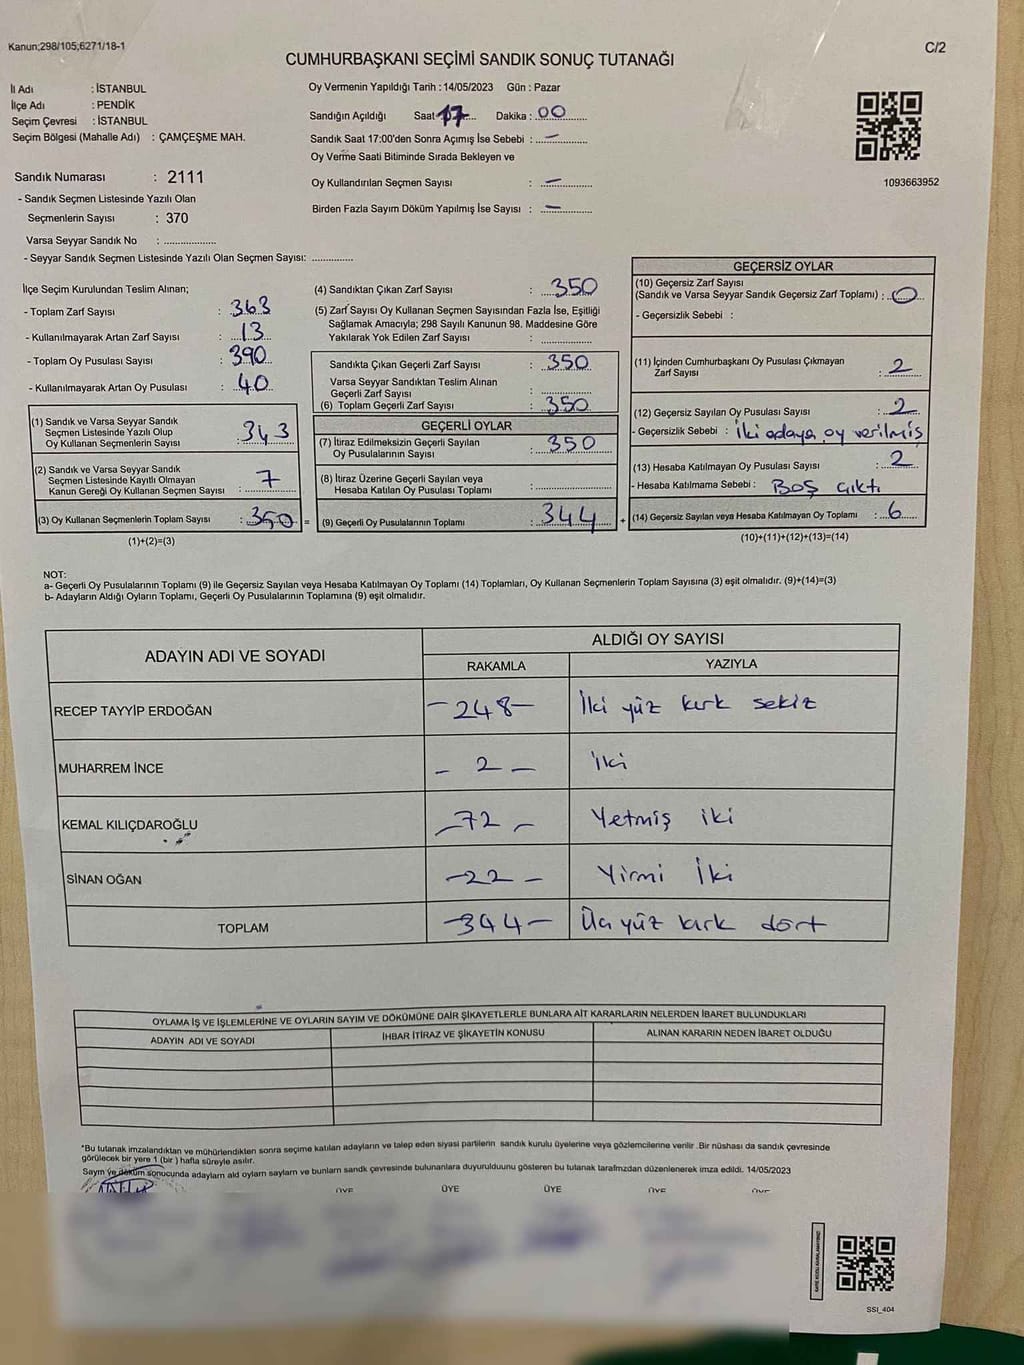 Kanun;298/105;6271/18-1
C/2
CUMHURBAŞKANI SEÇİMİ SANDIK SONUÇ TUTANAĞI
İl Adı : İSTANBUL
İlçe Adı : PENDİK
Seçim Çevresi : İSTANBUL
Seçim Bölgesi (Mahalle Adı) : ÇAMÇEŞME MAH.
Sandık Numarası : 2111
- Sandık Seçmen Listesinde Yazılı Olan
Seçmenlerin Sayısı : 370
Varsa Seyyar Sandık No : ..................
- Seyyar Sandık Seçmen Listesinde Yazılı Olan Seçmen Sayısı: ..............
Oy Vermenin Yapıldığı Tarih : 14/05/2023 Gün : Pazar
Sandığın Açıldığı Saat 17 Dakika : 00
Sandık Saat 17:00'den Sonra Açımış İse Sebebi : –
Oy Verme Saati Bitiminde Sırada Bekleyen ve
Oy Kullandırılan Seçmen Sayısı : –
Birden Fazla Sayım Döküm Yapılmış İse Sayısı : –
1093663952
İlçe Seçim Kurulundan Teslim Alınan;
- Toplam Zarf Sayısı : 363
- Kullanılmayarak Artan Zarf Sayısı : 13
- Toplam Oy Pusulası Sayısı : 390
- Kullanılmayarak Artan Oy Pusulası : 40
(1) Sandık ve Varsa Seyyar Sandık
Seçmen Listesinde Yazılı Olup
Oy Kullanan Seçmenlerin Sayısı : 343
(2) Sandık ve Varsa Seyyar Sandık
Seçmen Listesinde Kayıtlı Olmayan
Kanun Gereği Oy Kullanan Seçmen Sayısı : 7
(3) Oy Kullanan Seçmenlerin Toplam Sayısı : 350 =
(1)+(2)=(3)
(4) Sandıktan Çıkan Zarf Sayısı : 350
(5) Zarf Sayısı Oy Kullanan Seçmen Sayısından Fazla İse, Eşitliği
Sağlamak Amacıyla; 298 Sayılı Kanunun 98. Maddesine Göre
Yakılarak Yok Edilen Zarf Sayısı : ..................
Sandıkta Çıkan Geçerli Zarf Sayısı : 350
Varsa Seyyar Sandıktan Teslim Alınan
Geçerli Zarf Sayısı : ..................
(6) Toplam Geçerli Zarf Sayısı : 350
GEÇERLİ OYLAR
(7) İtiraz Edilmeksizin Geçerli Sayılan
Oy Pusulalarının Sayısı : 350
(8) İtiraz Üzerine Geçerli Sayılan veya
Hesaba Katılan Oy Pusulası Toplamı : ..................
(9) Geçerli Oy Pusulalarının Toplamı : 344 +
GEÇERSİZ OYLAR
(10) Geçersiz Zarf Sayısı
(Sandık ve Varsa Seyyar Sandık Geçersiz Zarf Toplamı) : 0
- Geçersizlik Sebebi :
(11) İçinden Cumhurbaşkanı Oy Pusulası Çıkmayan
Zarf Sayısı : 2
(12) Geçersiz Sayılan Oy Pusulası Sayısı : 2
- Geçersizlik Sebebi : İki adaya oy verilmiş
(13) Hesaba Katılmayan Oy Pusulası Sayısı : 2
- Hesaba Katılmama Sebebi : Boş çıktı
(14) Geçersiz Sayılan veya Hesaba Katılmayan Oy Toplamı : 6
(10)+(11)+(12)+(13)=(14)
NOT:
a- Geçerli Oy Pusulalarının Toplamı (9) ile Geçersiz Sayılan veya Hesaba Katılmayan Oy Toplamı (14) Toplamları, Oy Kullanan Seçmenlerin Toplam Sayısına (3) eşit olmalıdır. (9)+(14)=(3)
b- Adayların Aldığı Oyların Toplamı, Geçerli Oy Pusulalarının Toplamına (9) eşit olmalıdır.
ADAYIN ADI VE SOYADI
ALDIĞI OY SAYISI
RAKAMLA YAZIYLA
RECEP TAYYİP ERDOĞAN – 248 – İki yüz kırk sekiz
MUHARREM İNCE – 2 – iki
KEMAL KILIÇDAROĞLU – 72 – Yetmiş iki
SİNAN OĞAN – 22 – Yirmi İki
TOPLAM – 344 – Üç yüz kırk dört
OYLAMA İŞ VE İŞLEMLERİNE VE OYLARIN SAYIM VE DÖKÜMÜNE DAİR ŞİKAYETLERLE BUNLARA AİT KARARLARIN NELERDEN İBARET BULUNDUKLARI
ADAYIN ADI VE SOYADI İHBAR İTİRAZ VE ŞİKAYETİN KONUSU ALINAN KARARIN NEDEN İBARET OLDUĞU
*Bu tutanak imzalandıktan ve mühürlendikten sonra seçime katılan adayların ve talep eden siyasi partilerin sandık kurulu üyelerine veya gözlemcilerine verilir .Bir nüshası da sandık çevresinde
görülecek bir yere 1 (bir ) hafta süreyle asılır.
Sayım ve döküm sonucunda adayların ald oyların saylam ve bunların sandık çevresinde bulunanlara duyurulduunu gösteren bu tutanak tarafmzdan düzenlenerek imza edildi. 14/05/2023
ÜYE ÜYE ÜYE ÜYE ÜYE
SSI_404